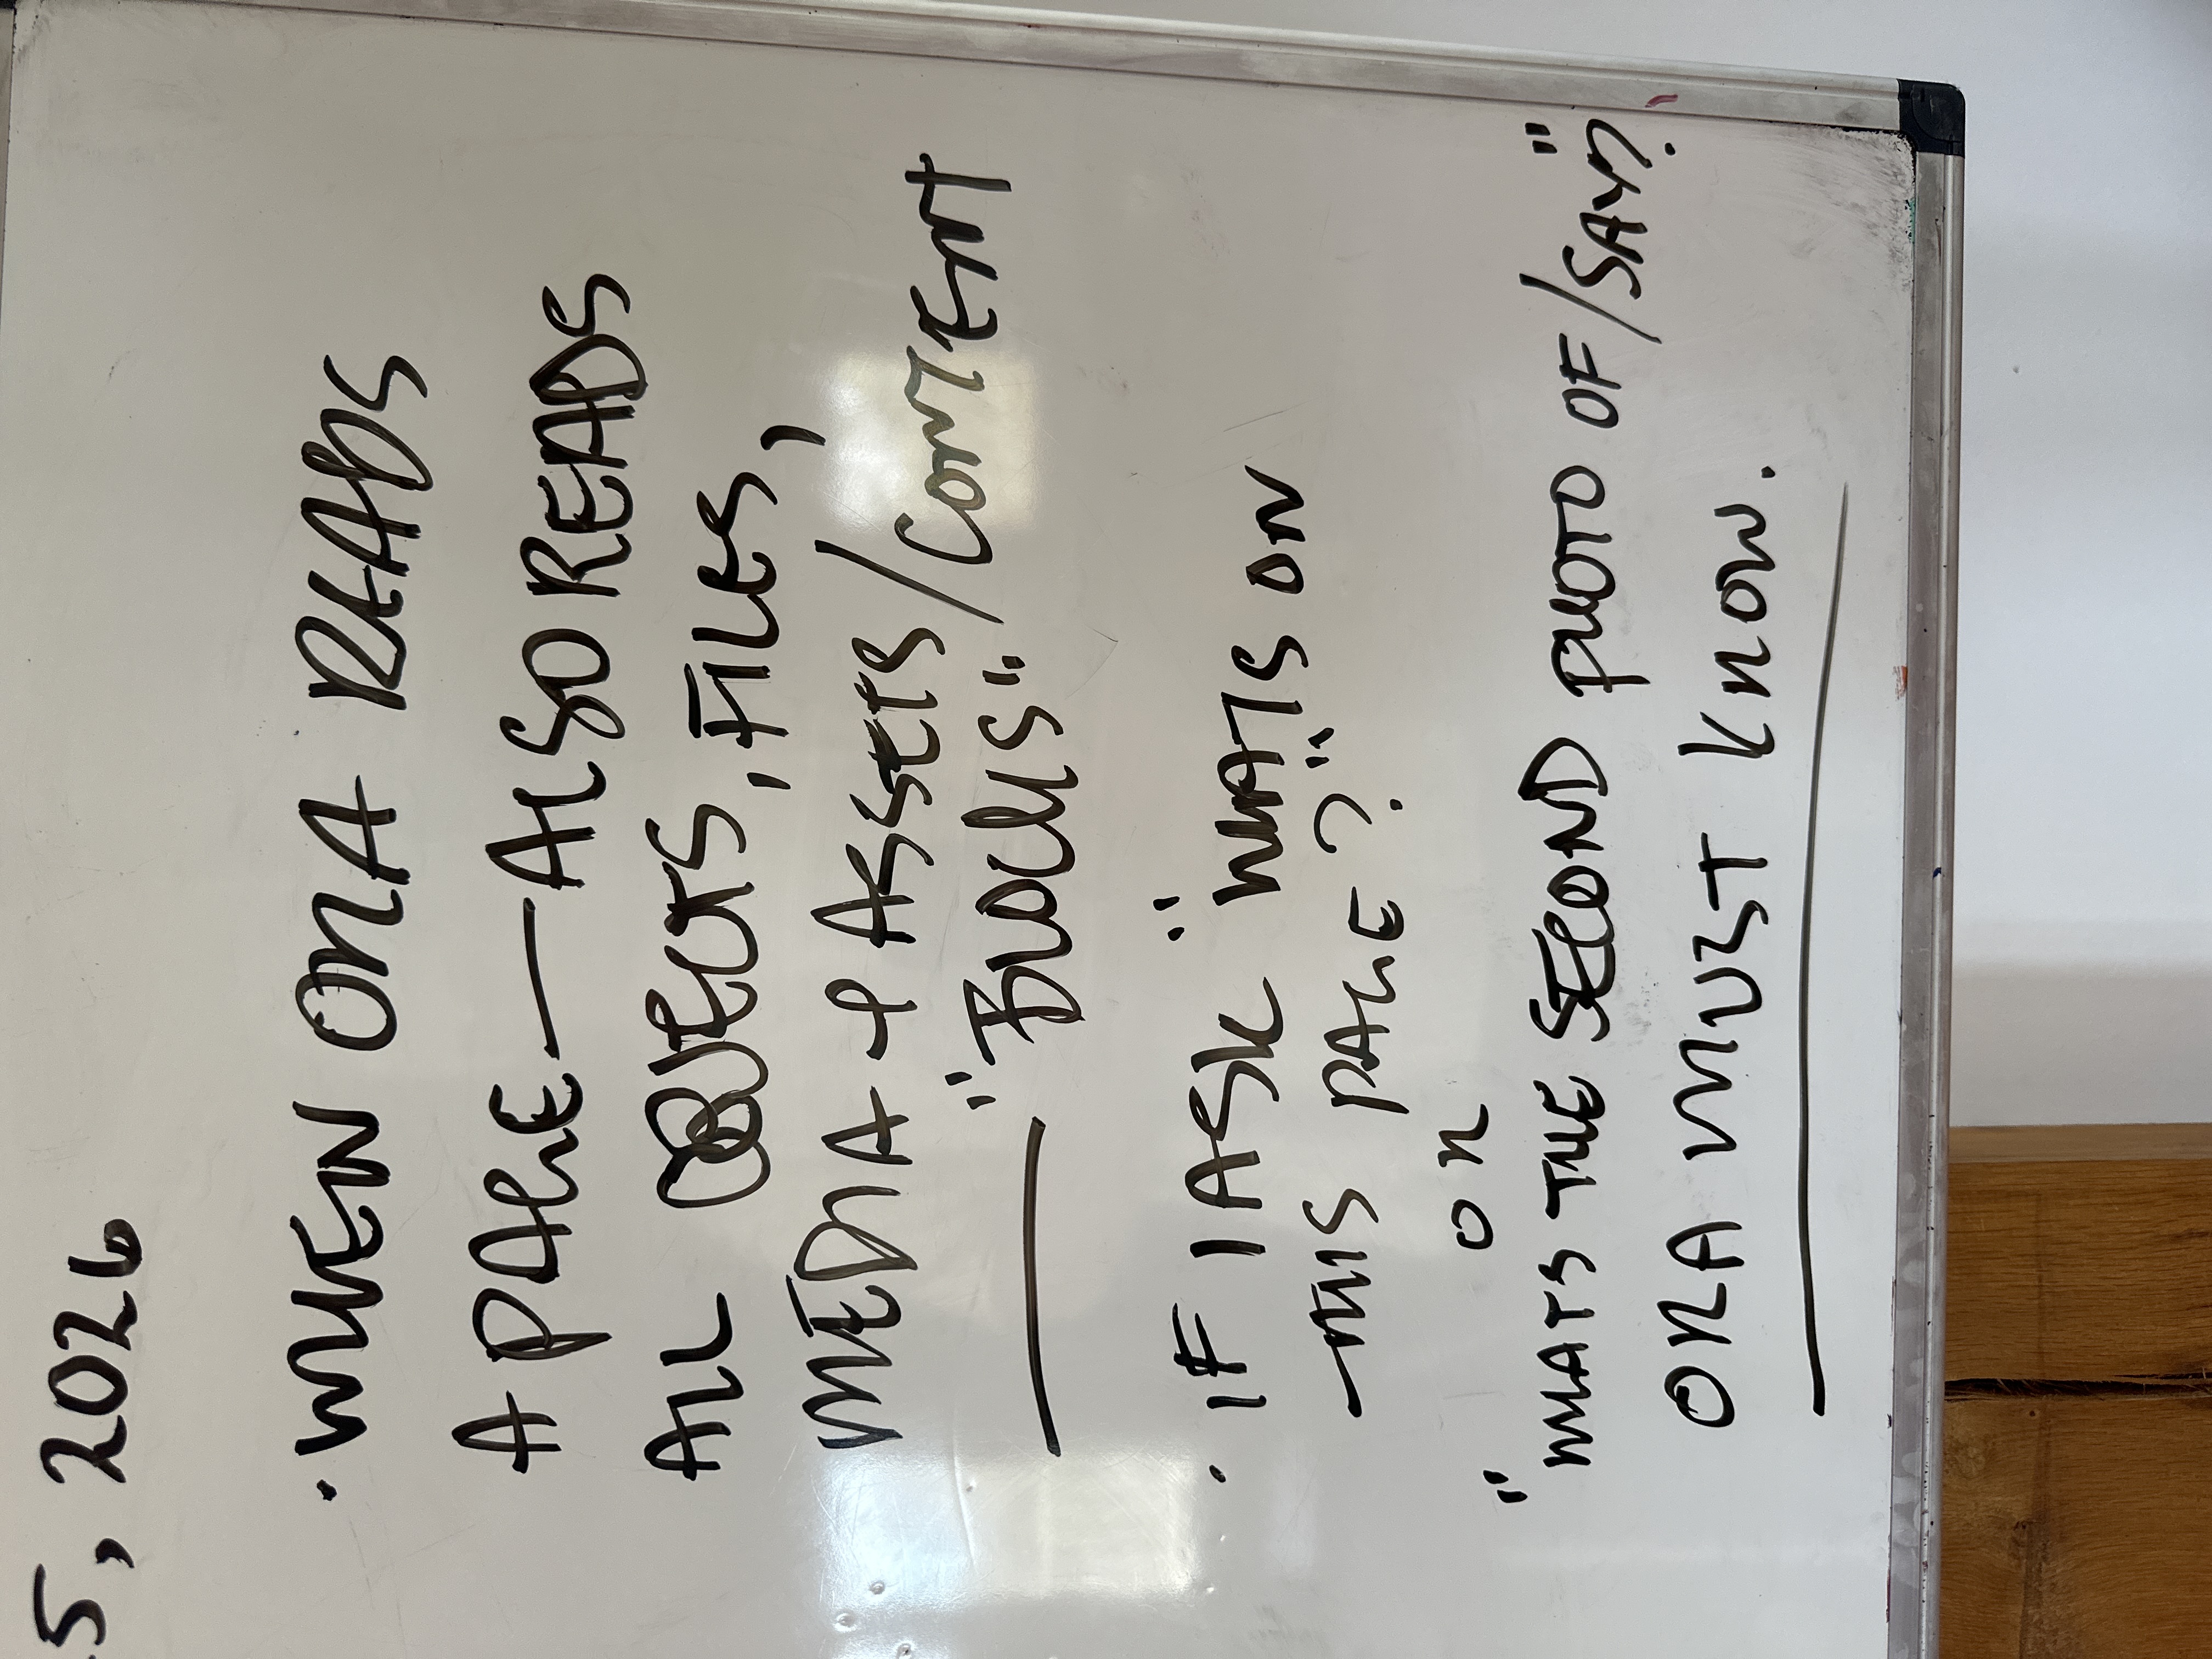 5, 2026
· WHEN ORA READS
A PAGE — ALSO READS
ALL OBJECTS, FILES,
MEDIA + ASSETS/CONTENT
"BLOCKS"
· IF I ASK "WHATS ON
THIS PAGE?"
OR
"WHATS THE SECOND PHOTO OF/SAY?"
ORA MUST KNOW.